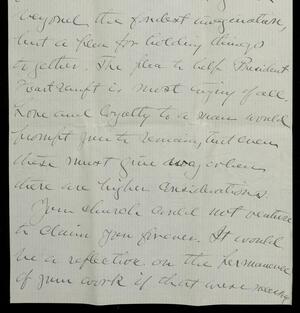 beyond the fondest imagination,
but a plea for holding things
together. The plea to help President
is most trying of all.
Love and loyalty to a man would
prompt you to remain, but even
these must give away when
there are higher considerations.
Your church could not venture
to claim you forever. It would
be a reflection on the permanence
of your work if that were necessary